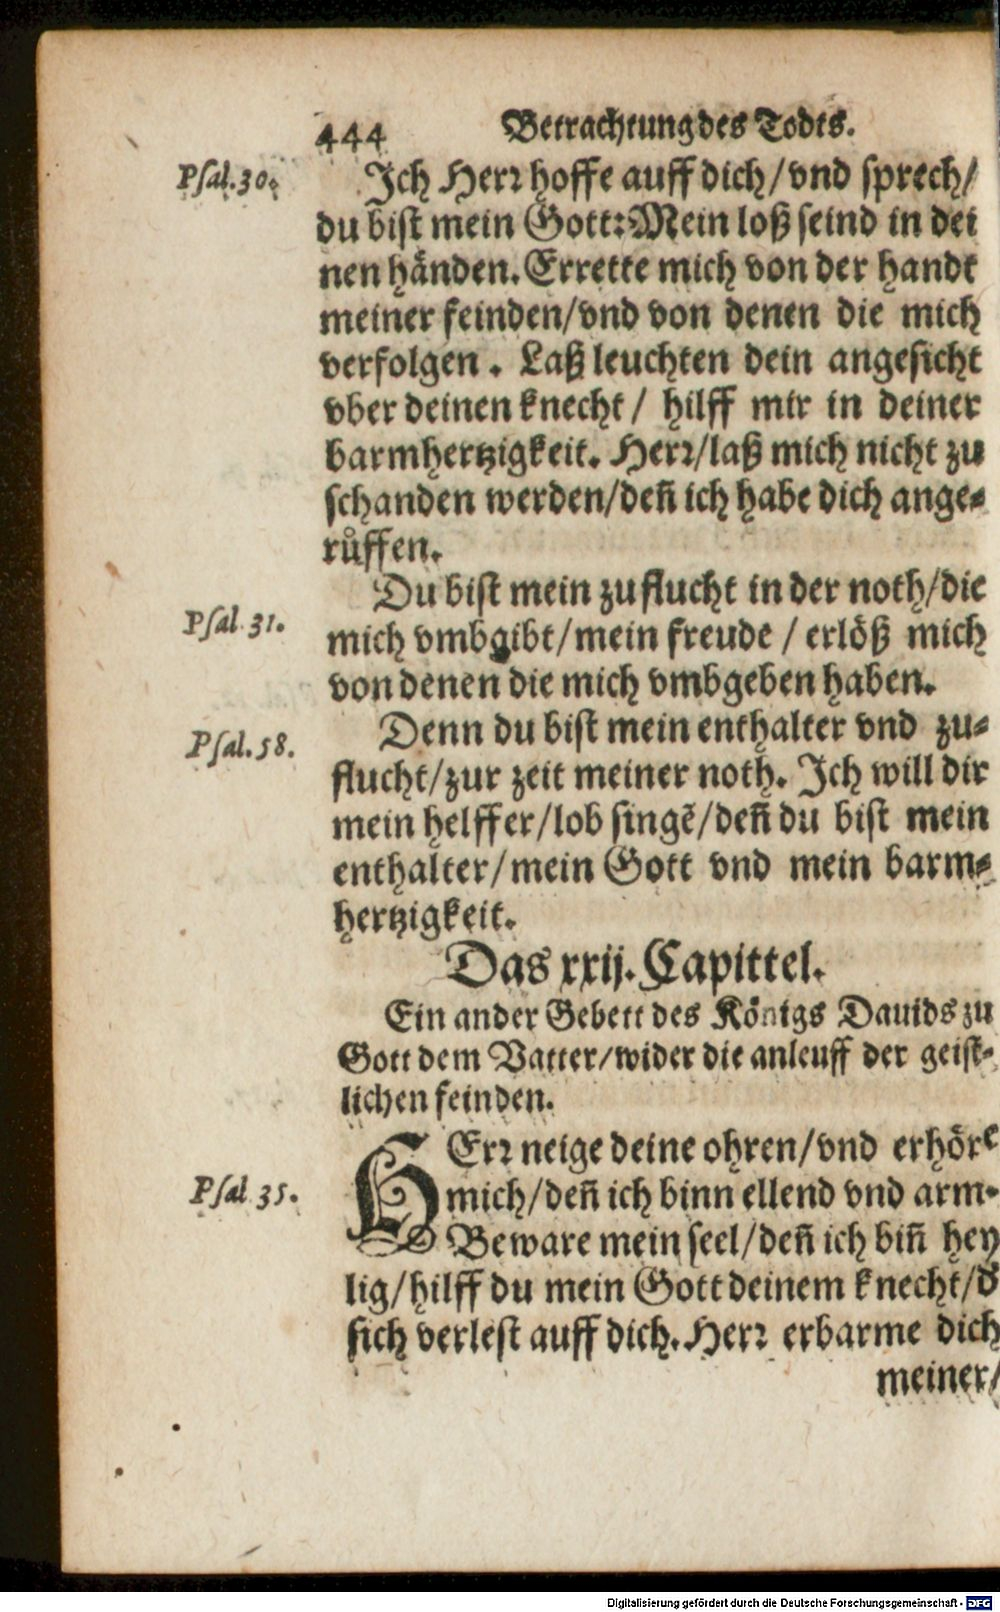 444 Betrachtung des Todts.
Psal. 30. Ich Herr hoffe auff dich/vnd sprech/
du bist mein Gott: Mein loß seind in dei
nen hånden. Errette mich von der handt
meiner feinden/vnd von denen die mich
verfolgen. Laß leuchten dein angesicht
vber deinen knecht/ hilff mir in deiner
barmhertzigkeit. Herr/laß mich nicht zu
schanden werden/deñ ich habe dich ange-
růffen.
Du bist mein zuflucht in der noth/die
Psal. 31. mich vmbgibt/mein freude / erlöß mich
von denen die mich vmbgeben haben.
Denn du bist mein enthalter vnd zu-
Psal. 58. flucht/zur zeit meiner noth. Ich will dir
mein helffer/lob singẽ/deñ du bist mein
enthalter/mein Gott vnd mein barm-
hertzigkeit.
Das xxij. Capittel.
Ein ander Gebett des Königs Dauids zu
Gott dem Vatter/wider die anleuff der geist-
lichen feinden.
HErr neige deine ohren/vnd erhöre
Psal. 35. mich/deñ ich binn ellend vnd arm.
Beware mein seel/deñ ich biñ hey
lig/hilff du mein Gott deinem knecht/d'
sich verlest auff dich. Herr erbarme dich
meiner/
Digitalisierung gefördert durch die Deutsche Forschungsgemeinschaft - DFG